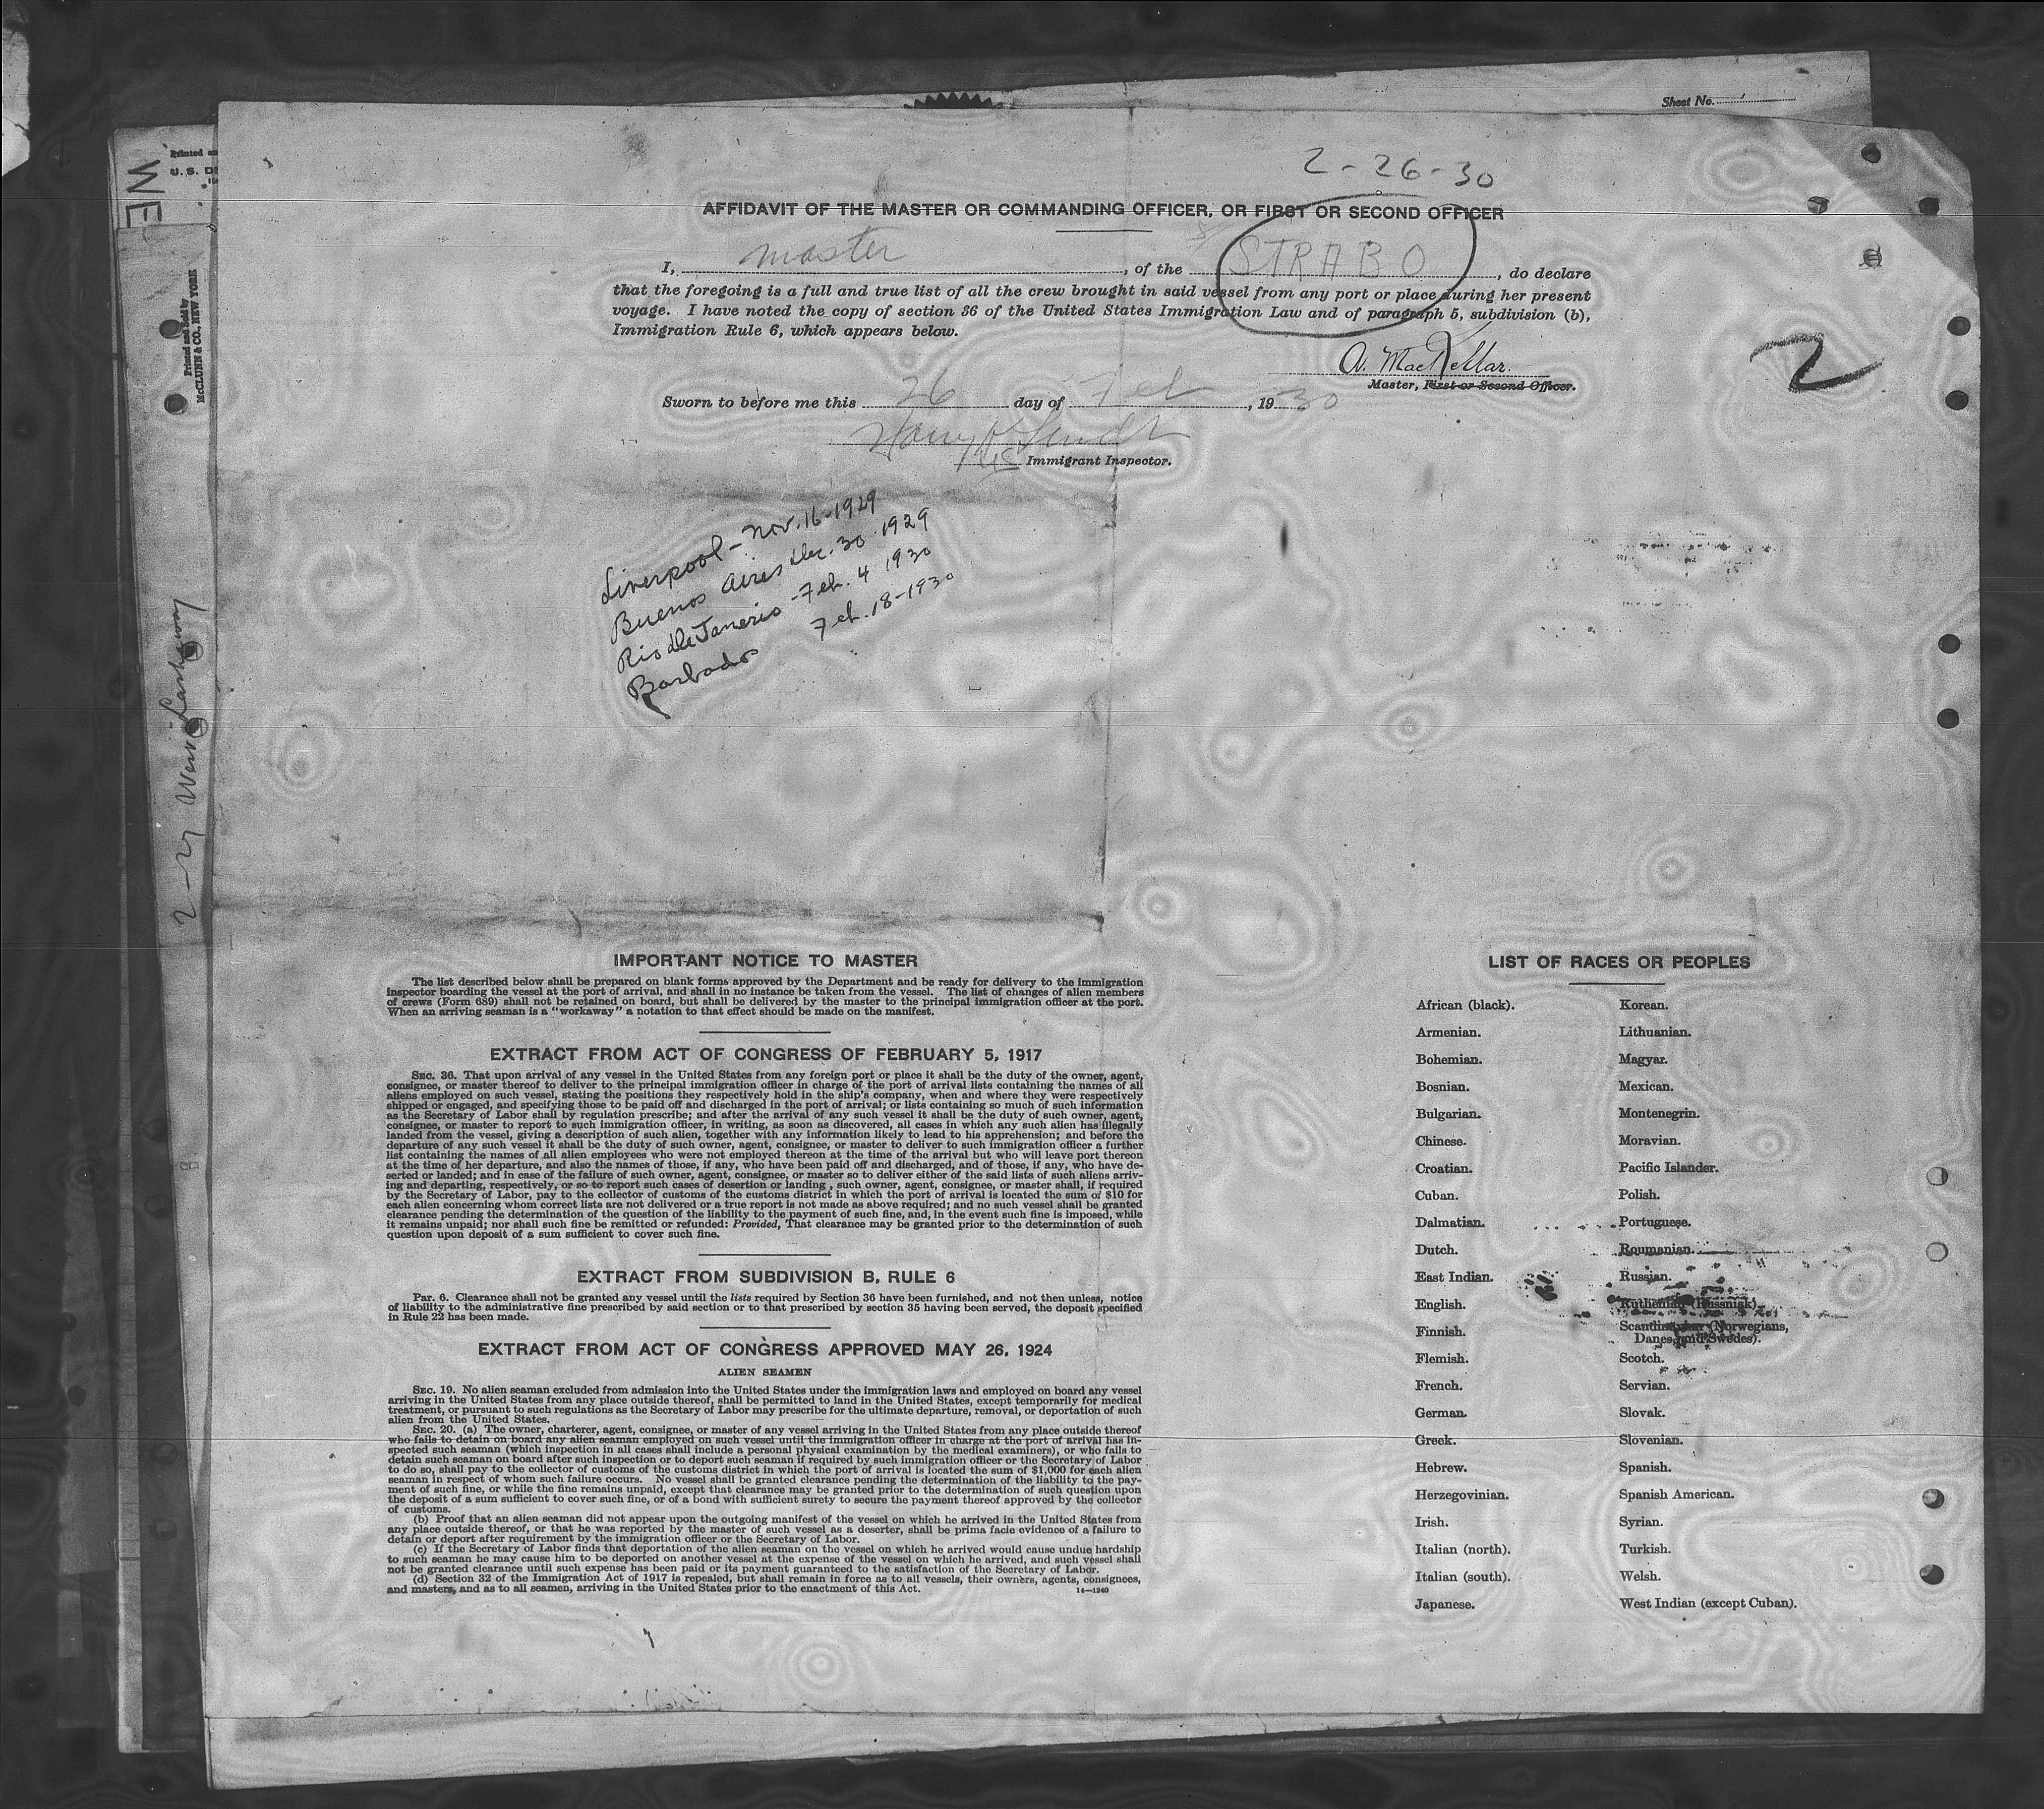 Sheet No.
2-26-30
AFFIDAVIT OF THE MASTER OR COMMANDING OFFICER, OR FIRST OR SECOND OFFICER
I, master, of the STRABO, do declare
that the foregoing is a full and true list of all the crew brought in said vessel from any port or place during her present
voyage. I have noted the copy of section 36 of the United States Immigration Law and of paragraph 5, subdivision (b),
Immigration Rule 6, which appears below.
A. MacKellar.
Master, First or Second Officer.
2
Sworn to before me this 26 day of Feb, 1930
Harry
Immigrant Inspector.
Liverpool - Nov. 16-1929
Buenos Aires Dec. 30 1929
Rio de Janerio - Feb. 4 1930
Barbados Feb. 18-1930
IMPORTANT NOTICE TO MASTER
The list described below shall be prepared on blank forms approved by the Department and be ready for delivery to the immigration
inspector boarding the vessel at the port of arrival, and shall in no instance be taken from the vessel. The list of changes of alien members
of crews (Form 689) shall not be retained on board, but shall be delivered by the master to the principal immigration officer at the port.
When an arriving seaman is a "workaway" a notation to that effect should be made on the manifest.
EXTRACT FROM ACT OF CONGRESS OF FEBRUARY 5, 1917
SEC. 36. That upon arrival of any vessel in the United States from any foreign port or place it shall be the duty of the owner, agent,
consignee, or master thereof to deliver to the principal immigration officer in charge of the port of arrival lists containing the names of all
aliens employed on such vessel, stating the positions they respectively hold in the ship's company, when and where they were respectively
shipped or engaged, and specifying those to be paid off and discharged in the port of arrival; or lists containing so much of such information
as the Secretary of Labor shall by regulation prescribe; and after the arrival of any such vessel it shall be the duty of such owner, agent,
consignee, or master to report to such immigration officer, in writing, as soon as discovered, all cases in which any such alien has illegally
landed from the vessel, giving a description of such alien, together with any information likely to lead to his apprehension; and before the
departure of any such vessel it shall be the duty of such owner, agent, consignee, or master to deliver to such immigration officer a further
list containing the names of all alien employees who were not employed thereon at the time of the arrival but who will leave port thereon
at the time of her departure, and also the names of those, if any, who have been paid off and discharged, and of those, if any, who have de-
serted or landed; and in case of the failure of such owner, agent, consignee, or master so to deliver either of the said lists of such aliens arriv-
ing and departing, respectively, or so to report such cases of desertion or landing, such owner, agent, consignee, or master shall, if required
by the Secretary of Labor, pay to the collector of customs of the customs district in which the port of arrival is located the sum of $10 for
each alien concerning whom correct lists are not delivered or a true report is not made as above required; and no such vessel shall be granted
clearance pending the determination of the question of the liability to the payment of such fine, and, in the event such fine is imposed, while
it remains unpaid; nor shall such fine be remitted or refunded: Provided, That clearance may be granted prior to the determination of such
question upon deposit of a sum sufficient to cover such fine.
EXTRACT FROM SUBDIVISION B, RULE 6
Par. 6. Clearance shall not be granted any vessel until the lists required by Section 36 have been furnished, and not then unless, notice
of liability to the administrative fine prescribed by said section or to that prescribed by section 35 having been served, the deposit specified
in Rule 22 has been made.
EXTRACT FROM ACT OF CONGRESS APPROVED MAY 26, 1924
ALIEN SEAMEN
SEC. 19. No alien seaman excluded from admission into the United States under the immigration laws and employed on board any vessel
arriving in the United States from any place outside thereof, shall be permitted to land in the United States, except temporarily for medical
treatment, or pursuant to such regulations as the Secretary of Labor may prescribe for the ultimate departure, removal, or deportation of such
alien from the United States.
SEC. 20. (a) The owner, charterer, agent, consignee, or master of any vessel arriving in the United States from any place outside thereof
who fails to detain on board any alien seaman employed on such vessel until the immigration officer in charge at the port of arrival has in-
spected such seaman (which inspection in all cases shall include a personal physical examination by the medical examiners), or who fails to
detain such seaman on board after such inspection or to deport such seaman if required by such immigration officer or the Secretary of Labor
to do so, shall pay to the collector of customs of the customs district in which the port of arrival is located the sum of $1,000 for each alien
seaman in respect of whom such failure occurs. No vessel shall be granted clearance pending the determination of the liability to the pay-
ment of such fine, or while the fine remains unpaid, except that clearance may be granted prior to the determination of such question upon
the deposit of a sum sufficient to cover such fine, or of a bond with sufficient surety to secure the payment thereof approved by the collector
of customs.
(b) Proof that an alien seaman did not appear upon the outgoing manifest of the vessel on which he arrived in the United States from
any place outside thereof, or that he was reported by the master of such vessel as a deserter, shall be prima facie evidence of a failure to
detain or deport after requirement by the immigration officer or the Secretary of Labor.
(c) If the Secretary of Labor finds that deportation of the alien seaman on the vessel on which he arrived would cause undue hardship
to such seaman he may cause him to be deported on another vessel at the expense of the vessel on which he arrived, and such vessel shall
not be granted clearance until such expense has been paid or its payment guaranteed to the satisfaction of the Secretary of Labor.
(d) Section 32 of the Immigration Act of 1917 is repealed, but shall remain in force as to all vessels, their owners, agents, consignees,
and masters, and as to all seamen, arriving in the United States prior to the enactment of this Act.
14—1240
LIST OF RACES OR PEOPLES
African (black).
Armenian.
Bohemian.
Bosnian.
Bulgarian.
Chinese.
Croatian.
Cuban.
Dalmatian.
Dutch.
East Indian.
English.
Finnish.
Flemish.
French.
German.
Greek.
Hebrew.
Herzegovinian.
Irish.
Italian (north).
Italian (south).
Japanese.
Korean.
Lithuanian.
Magyar.
Mexican.
Montenegrin.
Moravian.
Pacific Islander.
Polish.
Portuguese.
Roumanian.
Russian.
Ruthenian (Russniak).
Scandinavian (Norwegians,
Danes, and Swedes).
Scotch.
Servian.
Slovak.
Slovenian.
Spanish.
Spanish American.
Syrian.
Turkish.
Welsh.
West Indian (except Cuban).
WE
Printed and Sold by
McCLUNN & CO., NEW YORK